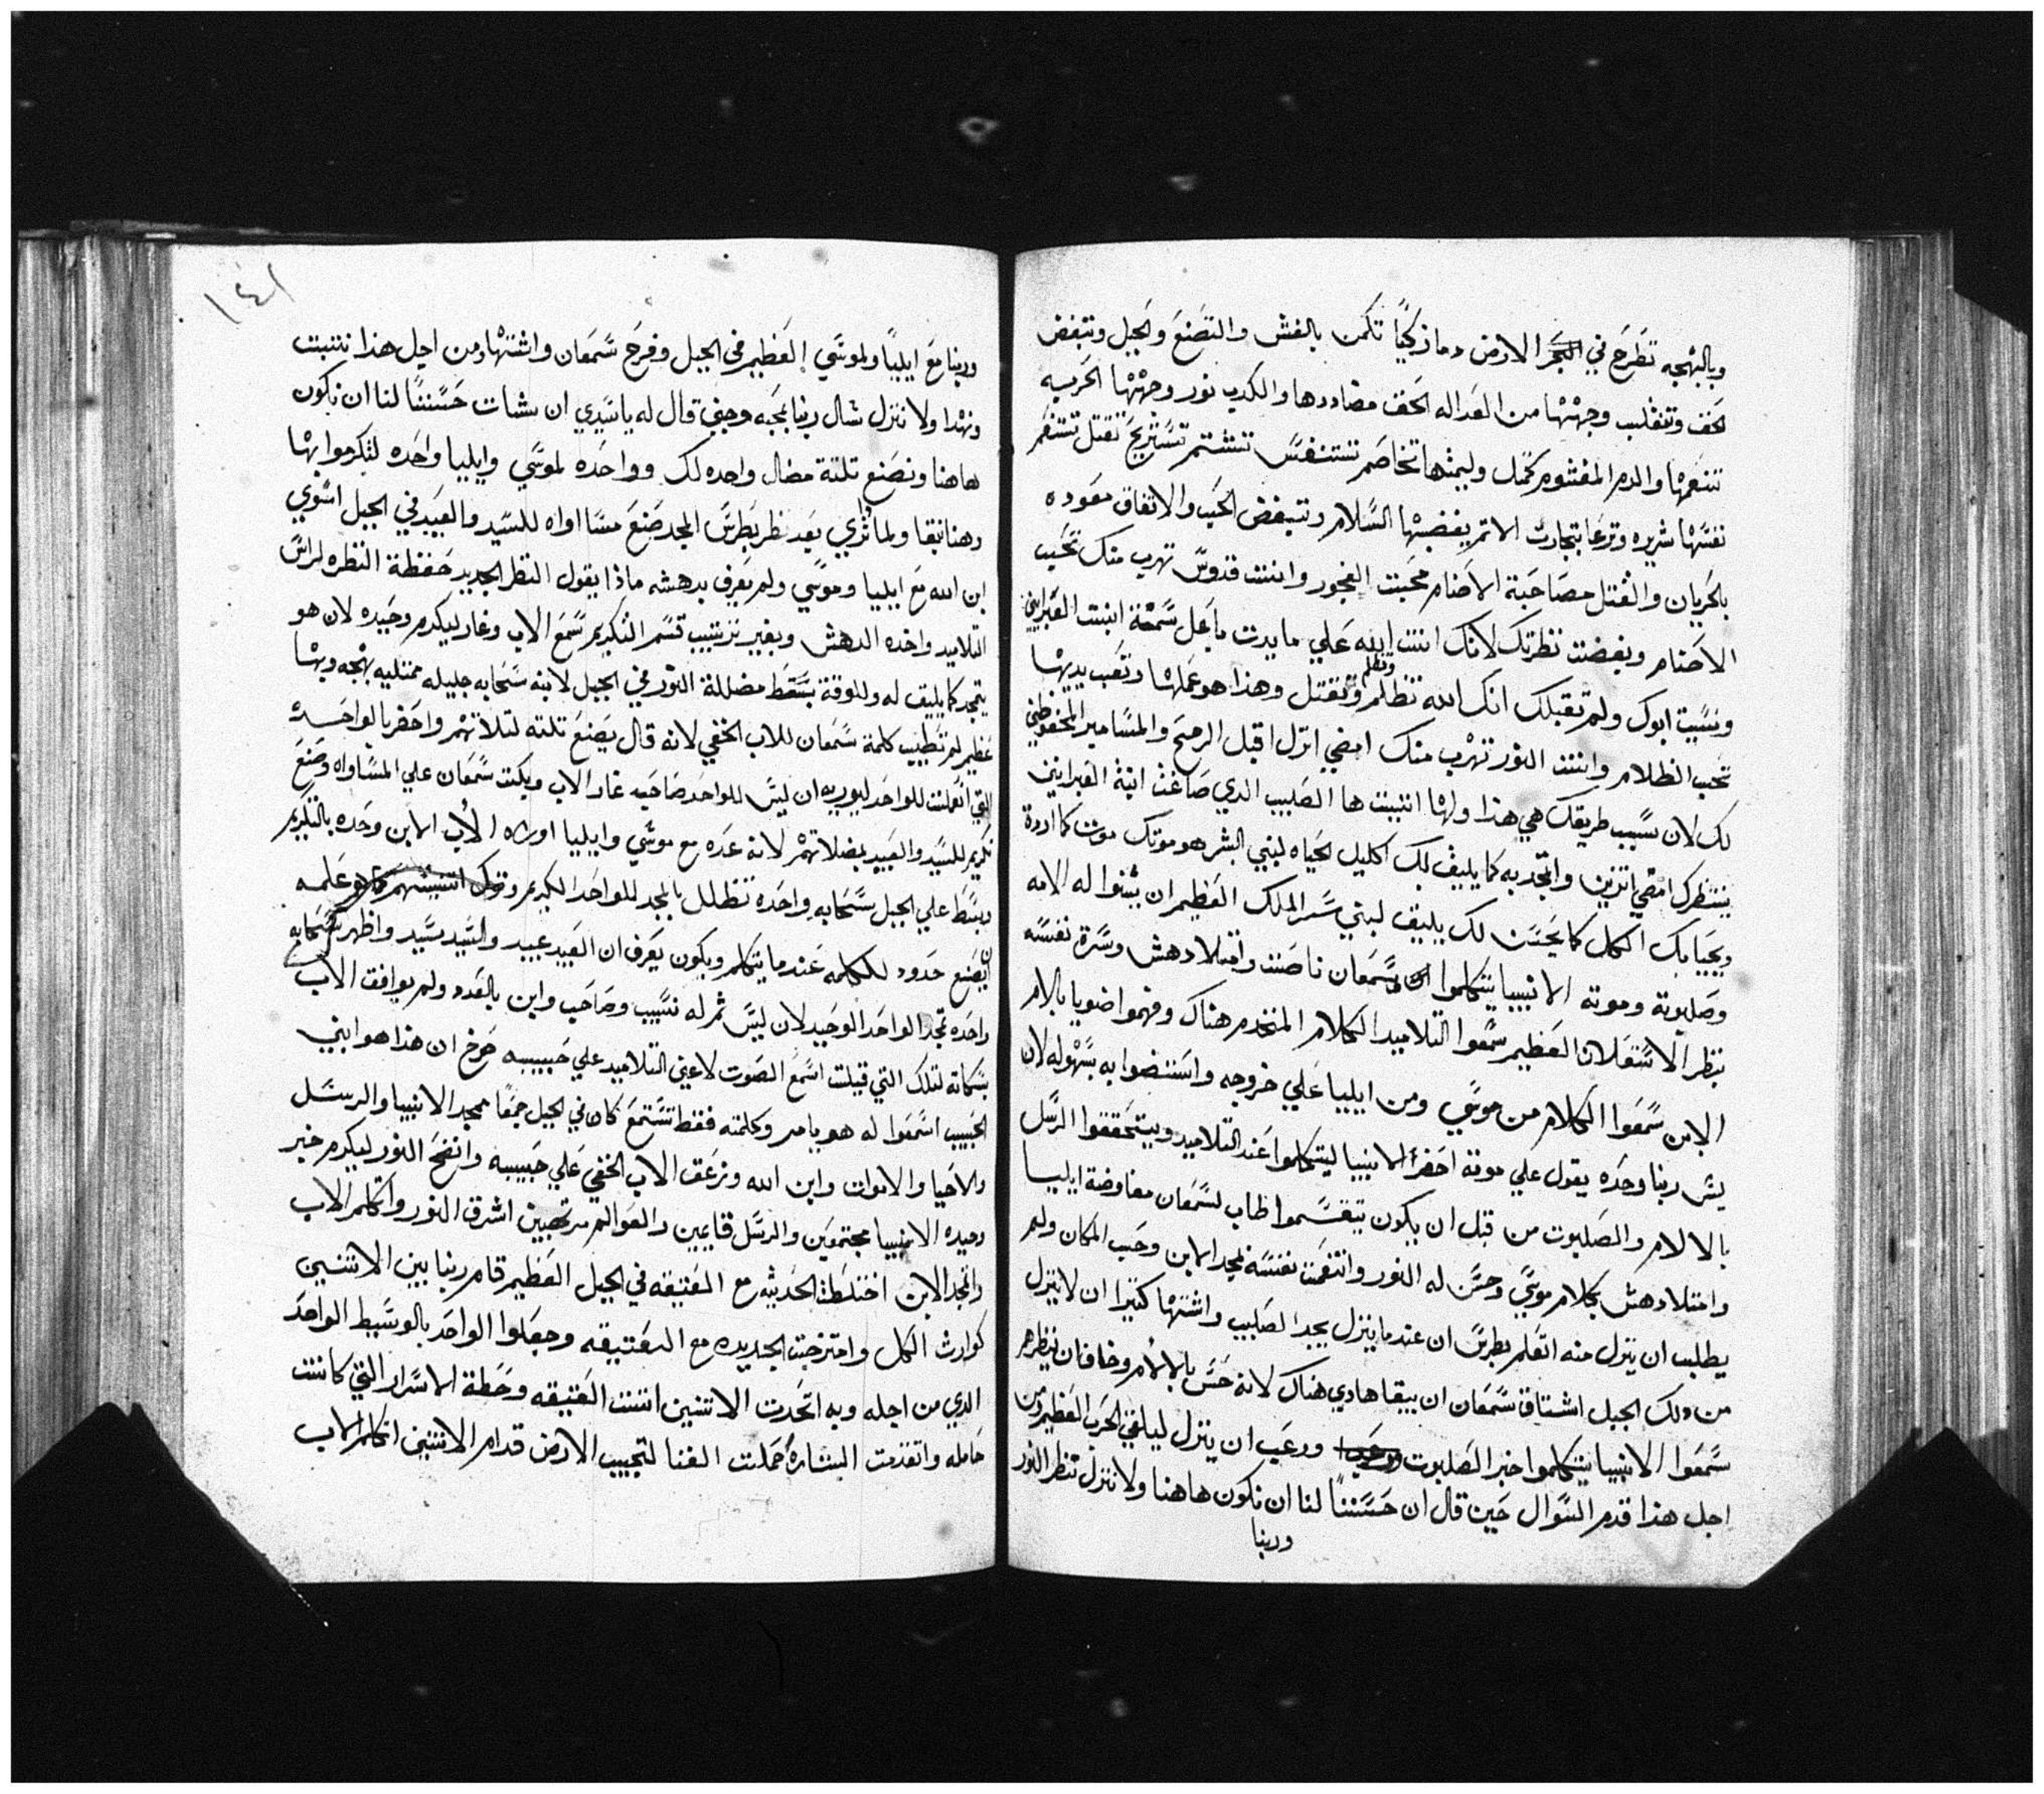 وبالبهجه تطرح في الارض دما زكيًا تكمن بالغش والتصنع والحيل وتبغض
الحق وتنقلب وجهتها من العداله الحق مضاددها والكدب نور وجهتها الحريه
تنغمها والدم المغشوم كمل وليمتها تخاصم تستنفس تشتم تستريح تقتل تتنغم
نفسها شريره وترعا بتجارت الاتم يغضبها السلام وتبغض الحب والاتفاق معوده
بالحريان والقتل مصاحبة الاصنام محبت الفجور وانت قدوس تهرب منك تحب
الاصنام وبغضت نظرتك لانك انت ابنه علي مايدت ياعل سمعة ابنت العبرانيين
ونسيت ابوك ولم تقبلك انك الله تظلم وتظلم وتقتل وهذا هو عملها وتعب يديها
تحب الظلام وانت النور تهرب منك امضي انزل اقبل الرمح والمسامير المحفوظين
لك لان بسبب طريقك هي هذا ولها اتيت ها الصليب الدي صاغت ابنة العبرانيين
ينتظرك امضي اتزين واتحد به كما يليق لك اكليل الحياه لبني البشر هو موتك موت كما اردة
ويحيا بك الكل كما يحسن لك يليق لبني سر الملك العظيم ان يتنوا له الامه
وصلبوته وموته الانبيا يتكلموا وسمعان ناصت وامتلا دهش وسرة نفسه
بنظر الاستعلان العظيم سمعوا التلاميد الكلام المتقدم هناك وفهموا ضويا بالام
الابن سمعوا الكلام من موسي ومن ايليا علي خروجه واستضوا به بسهوله لان
ليس ربنا وحده يقول علي موته احضر الانبيا ليتكلموا عند التلاميد ويتحققوا الرسل
بالالام والصلبوت من قبل ان يكون يتقسموا طاب لسمعان مفاوضة ايليا
وامتلا دهش بكلام موسي وحسن له النور وانتغمت نفسه لمجد الابن وحب المكان ولم
يطلب ان ينزل منه اتعلم بطرس ان عندما ينزل يجد الصليب واشتها كتيرا ان لاينزل
من دلك الجبل اشتاق سمعان ان يبقا هادي هناك لانه حس بالالام وخاف ان ينظرهم
سمعوا الانبيا يتكلموا خبر الصلبوت ورعب ان ينزل ليلقي الحرب العظيم ومن
اجل هذا قدم السوال حين قال ان حسننًا لنا ان نكون هاهنا ولا ننزل ننظر النور
وربنا
١٤١
وربنا مع ايليا ولموسي العظيم في الجبل وفرح سمعان واشتهاد من اجل هذا نتبت
ونهدا ولا ننزل شال ربنا بمحبه وجني قال له ياسيدي ان شات حسننًا لنا ان نكون
هاهنا ونصنع تلتة مضال واحده لك وواحده لموسي وايليا واحده لنكرموا بها
وهنا نبقا ولما نري بعد نظر بطرس المجد صنع مساواه للسيد والعبيد في الجبل استوي
ابن الله مع ايليا وموسي ولم يعرف بدهشه ماذا يقول النظر الجديد حفظة النظره لراس
التلاميد واخده الدهش وبغير ترتيب قسم التكريم سمع الاب وغار ليكرم وحيده لان هو
يتمجد كما يليق له وللوقت بسط مضللة النور في الجبل لابنه سحابه جليله ممتليه بهجه وبها
عظيم لم تطيب كلمة سمعان للاب الخفي لانه قال يصنع تلته لتلاتهم واحضر بالواحده
التي اتعملت للواحد ليوريه ان ليس للواحد صاحب غار الاب وبكت سمعان علي المساواه وصنع
تكريم للسيد والعبيد بمضلاتهم لانه عده مع موسي وايليا اوراه الاب الابن وحده بالتكريم
وبسط علي الجبل سحابه واحده تظلل بالمجد للواحد الكبير وترك علمه
ان يصنع حدود للكلمه عندما يتكلم ويكون يعرف ان العبيد عبيد والسيد سيد واظهر سحابه
واحده تمجد الواحد الوحيد لان ليس تم له نسيب وصاحب وابن بالعدد ولم يوافق الاب
بسكاته لتلك التي قيلت اسمع الصوت لاعين التلاميد علي حبيبه صرخ ان هذا هو ابني
الحبيب اسمعوا له هو يامر وكلمته فقط تستمع كان في الجبل جمعًا محمد الانبيا والرسل
والاحيا والاموات وابن الله وزعق الاب الخفي علي حبيبه وانفتح النور ليكرم خبر
وحيده الانبيا مجتمعين والرسل قايمين والعوالم مرتهبين اشرق النور واتكلم الاب
واتمجد الابن اختلطة الحديثه مع العتيقه في الجبل العظيم قام ربنا بين الاتنين
كوارث الكل وامتزجت الجديده مع العتيقه وجعلوا الواحد بالوسيط الواحد
الدي من اجله وبه اتحدت الاتنين انتت العتيقه وحطة الاسرار التي كانت
حامله واتقدمت البشاره حملت الغنا لتجيب الارض قدام الاتنين اتكلم الاب